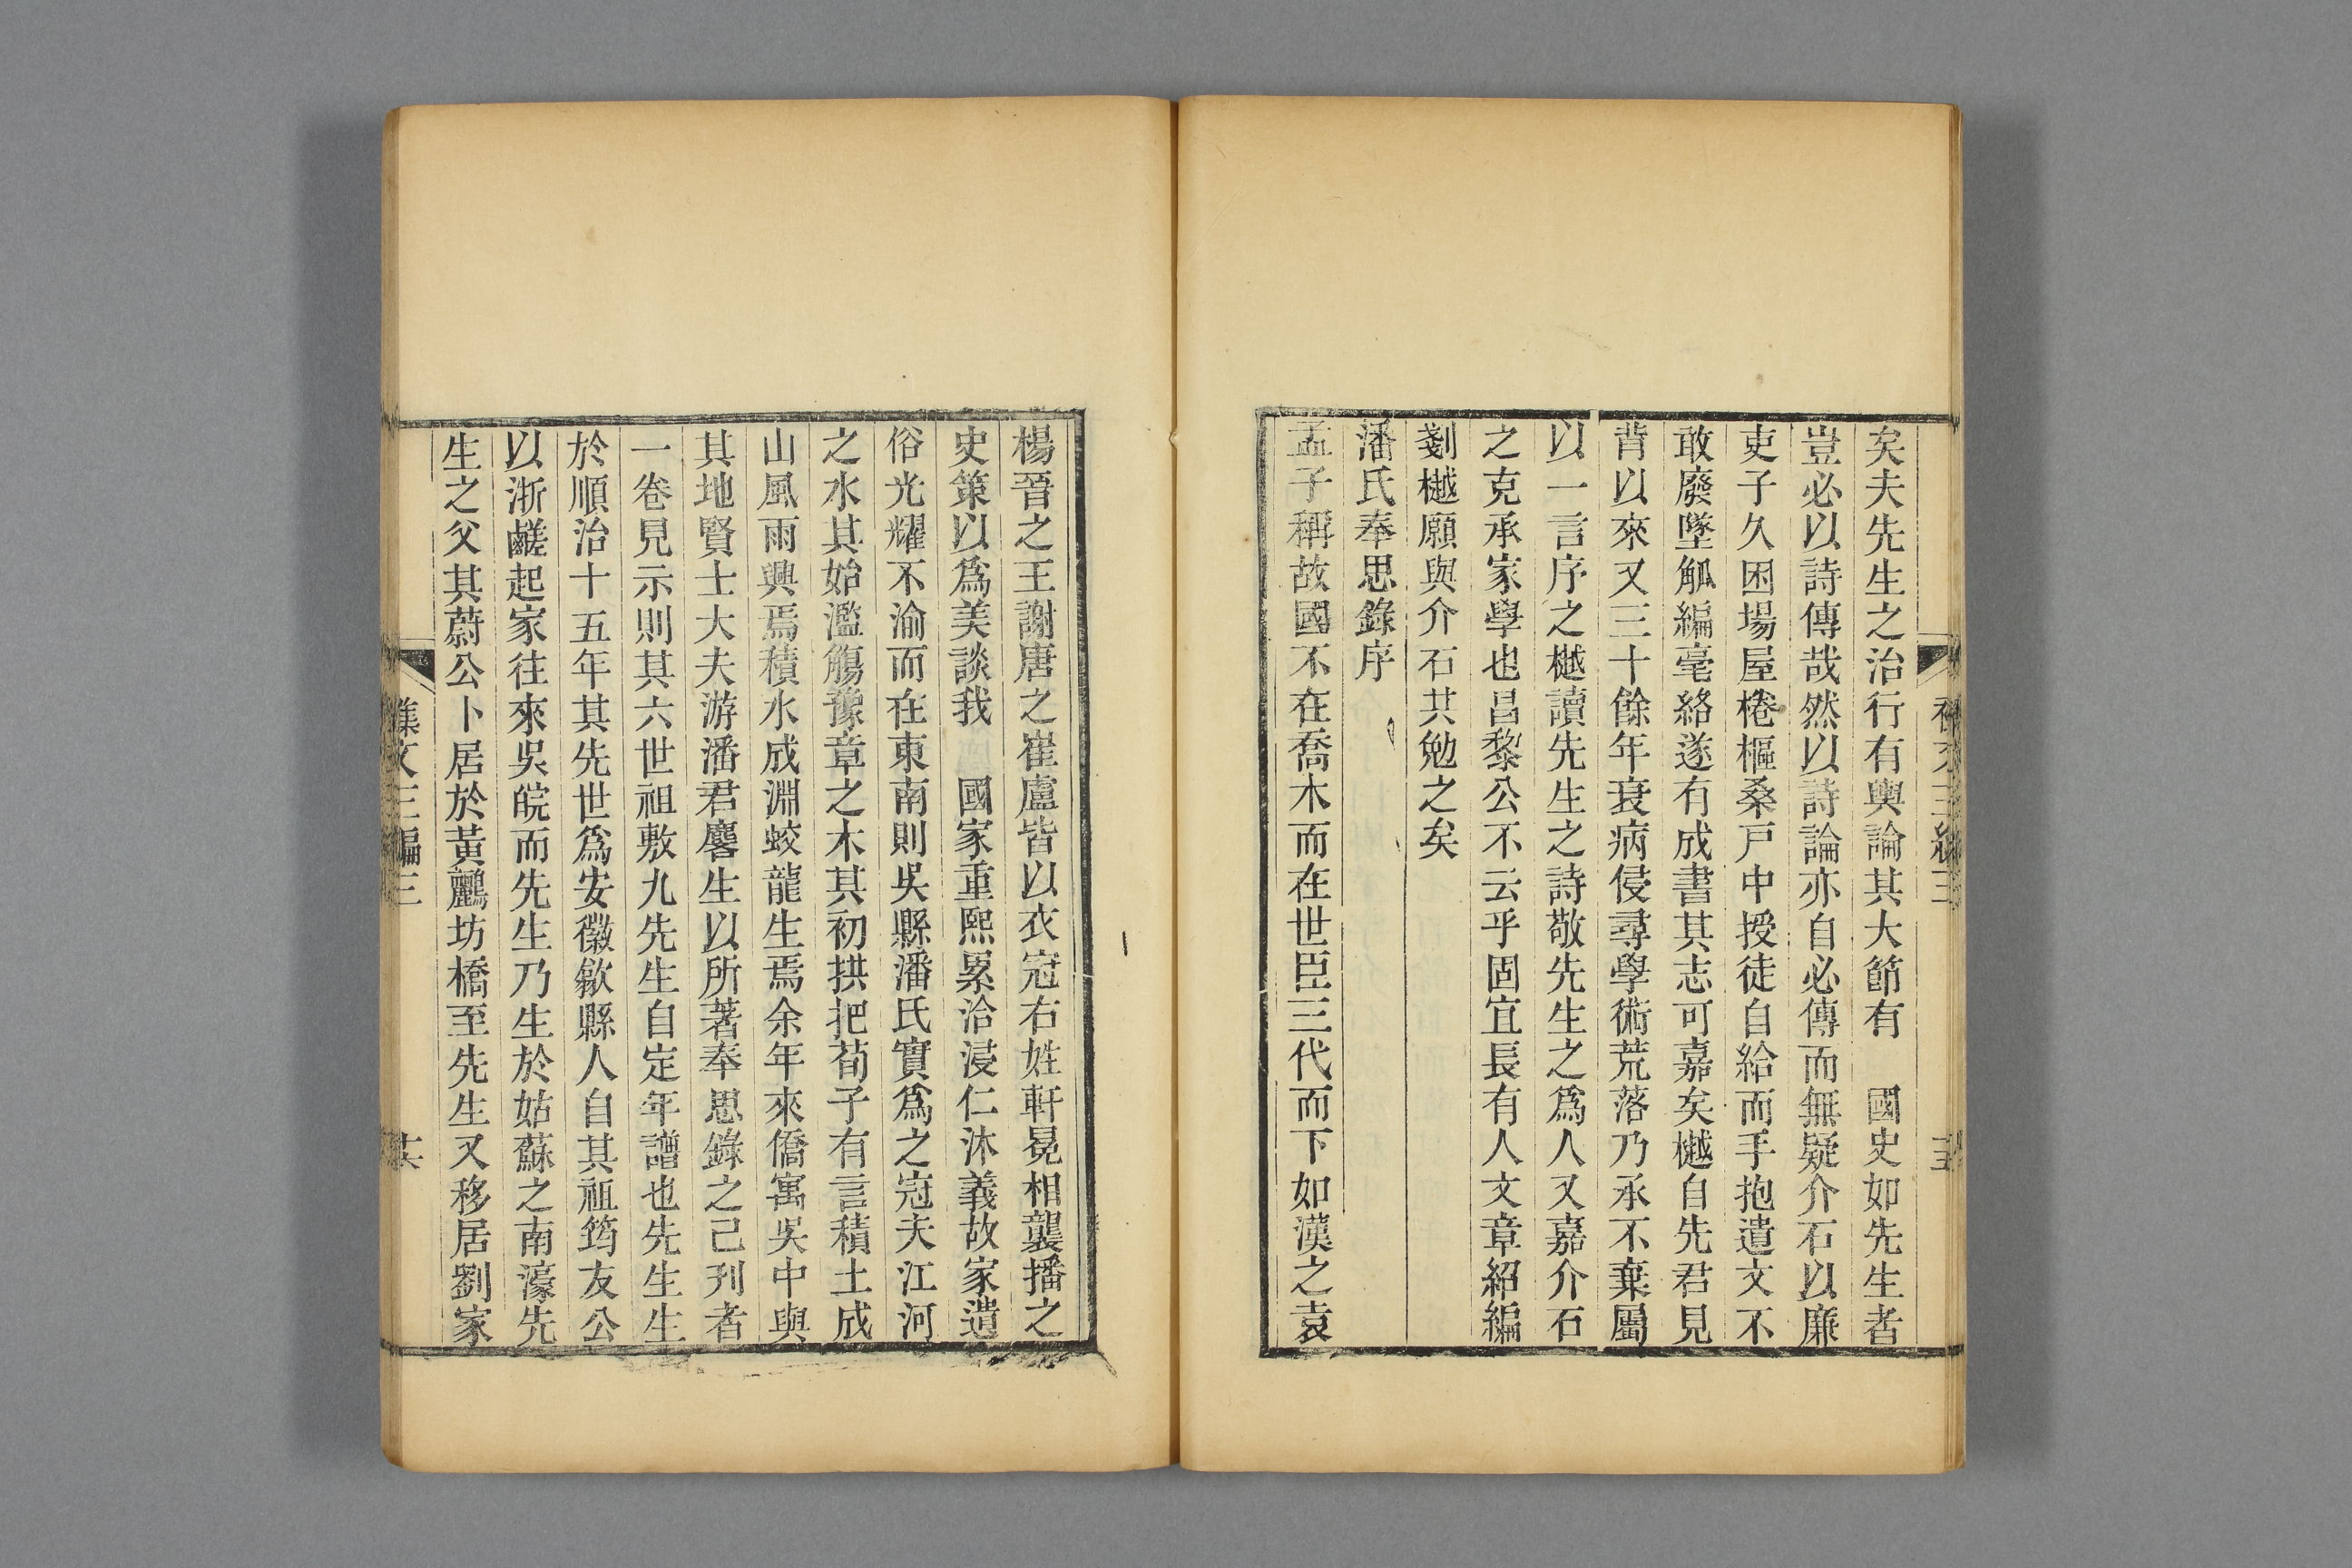 矣夫先生之治行有輿論其大節有　國史如先生者
豈必以詩傳哉然以詩論亦自必傳而無疑介石以廉
吏子久困場屋棬樞桑戶中授徒自給而手抱遺文不
敢廢墜觚編毫絡遂有成書其志可嘉矣樾自先君見
背以來又三十餘年衰病侵尋學術荒落乃承不棄屬
以一言序之樾讀先生之詩敬先生之爲人又嘉介石
之克承家學也昌黎公不云乎固宜長有人文章紹編
剗樾願與介石共勉之矣
潘氏奉思錄序
孟子稱故國不在喬木而在世臣三代而下如漢之袁
楊晉之王謝唐之崔盧皆以衣冠右姓軒冕相襲播之
史策以爲美談我　國家重熙累洽浸仁沐義故家遺
俗光耀不渝而在東南則吳縣潘氏實爲之冠夫江河
之水其始濫觴豫章之木其初拱把荀子有言積土成
山風雨興焉積水成淵蛟龍生焉余年來僑寓吳中與
其地賢士大夫游潘君麐生以所著奉思錄之已刋者
一卷見示則其六世祖敷九先生自定年譜也先生生
於順治十五年其先世爲安徽歙縣人自其祖筠友公
以浙鹺起家往來吳皖而先生乃生於姑蘇之南濠先
生之父其蔚公卜居於黃鸝坊橋至先生又移居劉家
文三編三